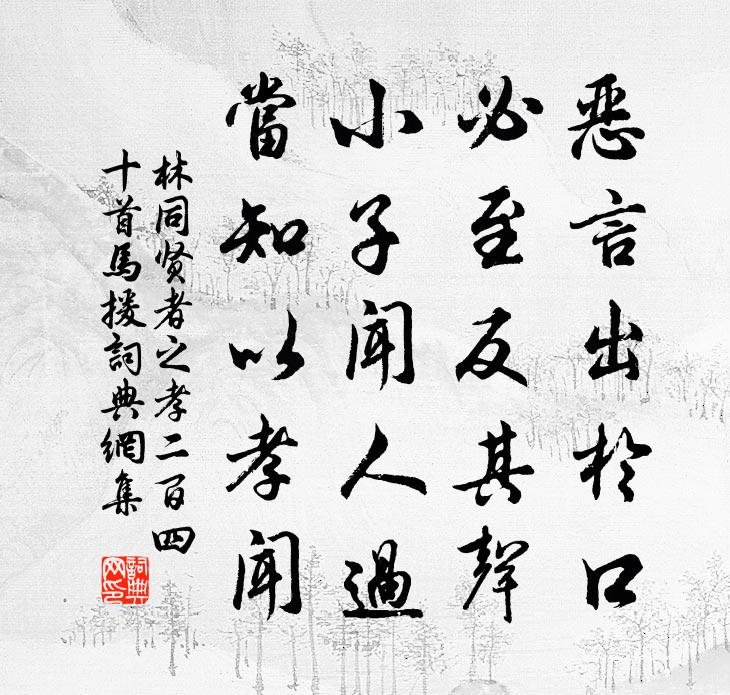 恶言出於口
必至反其聲
小子闻人過
當知以孝闻
林同贤者之孝二百四
十首馬援詞典網集
詞典网印